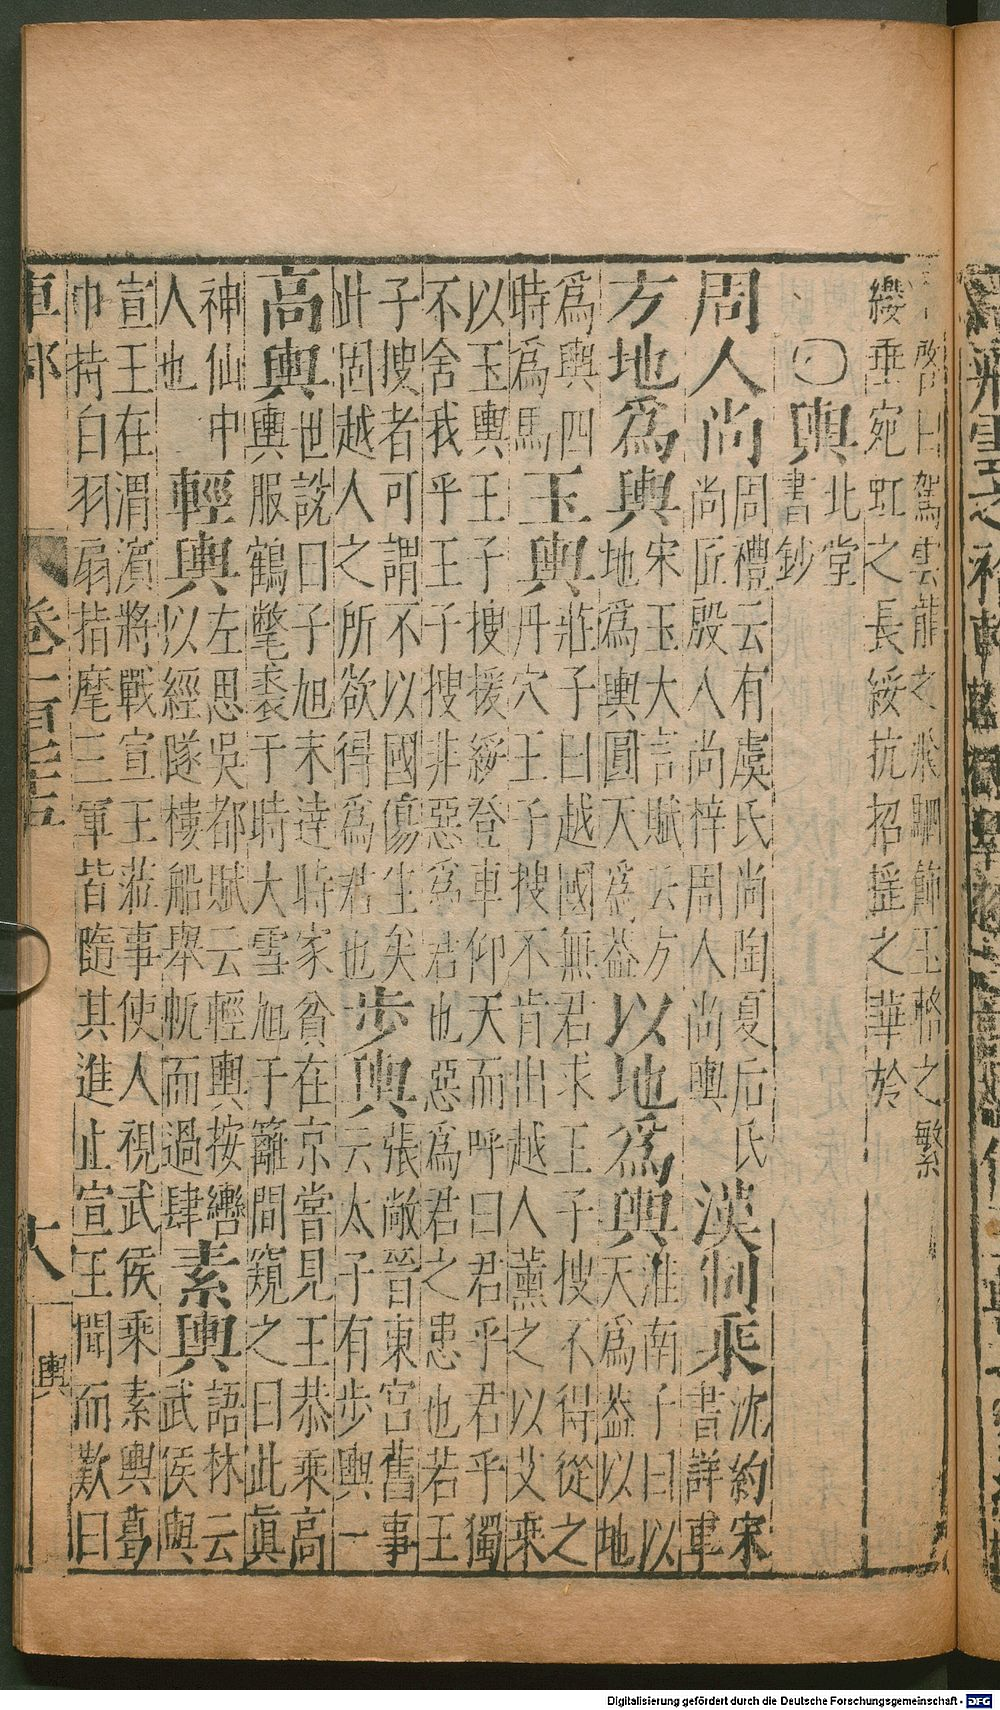 啟曰駕雲龍之飛駟飾玉輅之繁
纓垂宛虹之長綏抗招搖之華於
○輿 北堂
書鈔
周人尚 周禮云有虞氏尚陶夏后氏
尚匠殷人尚梓周人尚輿
漢制乘 沈約宋
書詳車
方地爲輿 宋玉大言賦云方
地爲輿圓天爲蓋
以地爲輿 淮南子曰以
天爲蓋以地
爲輿四
時爲馬
玉輿 莊子曰越國無君求王子搜不得從之
丹穴王子搜不肯出越人薰之以艾乘
以玉輿王子搜援綏登車仰天而呼曰君乎君乎獨
不舍我乎王子搜非惡爲君也惡爲君之患也若王
子搜者可謂不以國傷生矣
此固越人之所欲得爲君也
步輿 張敞晉東宮舊事
云太子有步輿一
高輿 世說曰子旭未達時家貧在京嘗見王恭乘高
輿服鶴氅裘于時大雪旭于籬間窺之曰此眞
神仙中
人也
輕輿 左思吳都賦云輕輿按轡
以經隧樓船舉帆而過肆
素輿 語林云
武侯與
宣王在渭濱將戰宣王蒞事使人視武侯乘素輿葛
巾持白羽扇指麾三軍皆隨其進止宣王聞而歎曰
車部
卷一百
輿
Digitalisierung gefördert durch die Deutsche Forschungsgemeinschaft - DFG